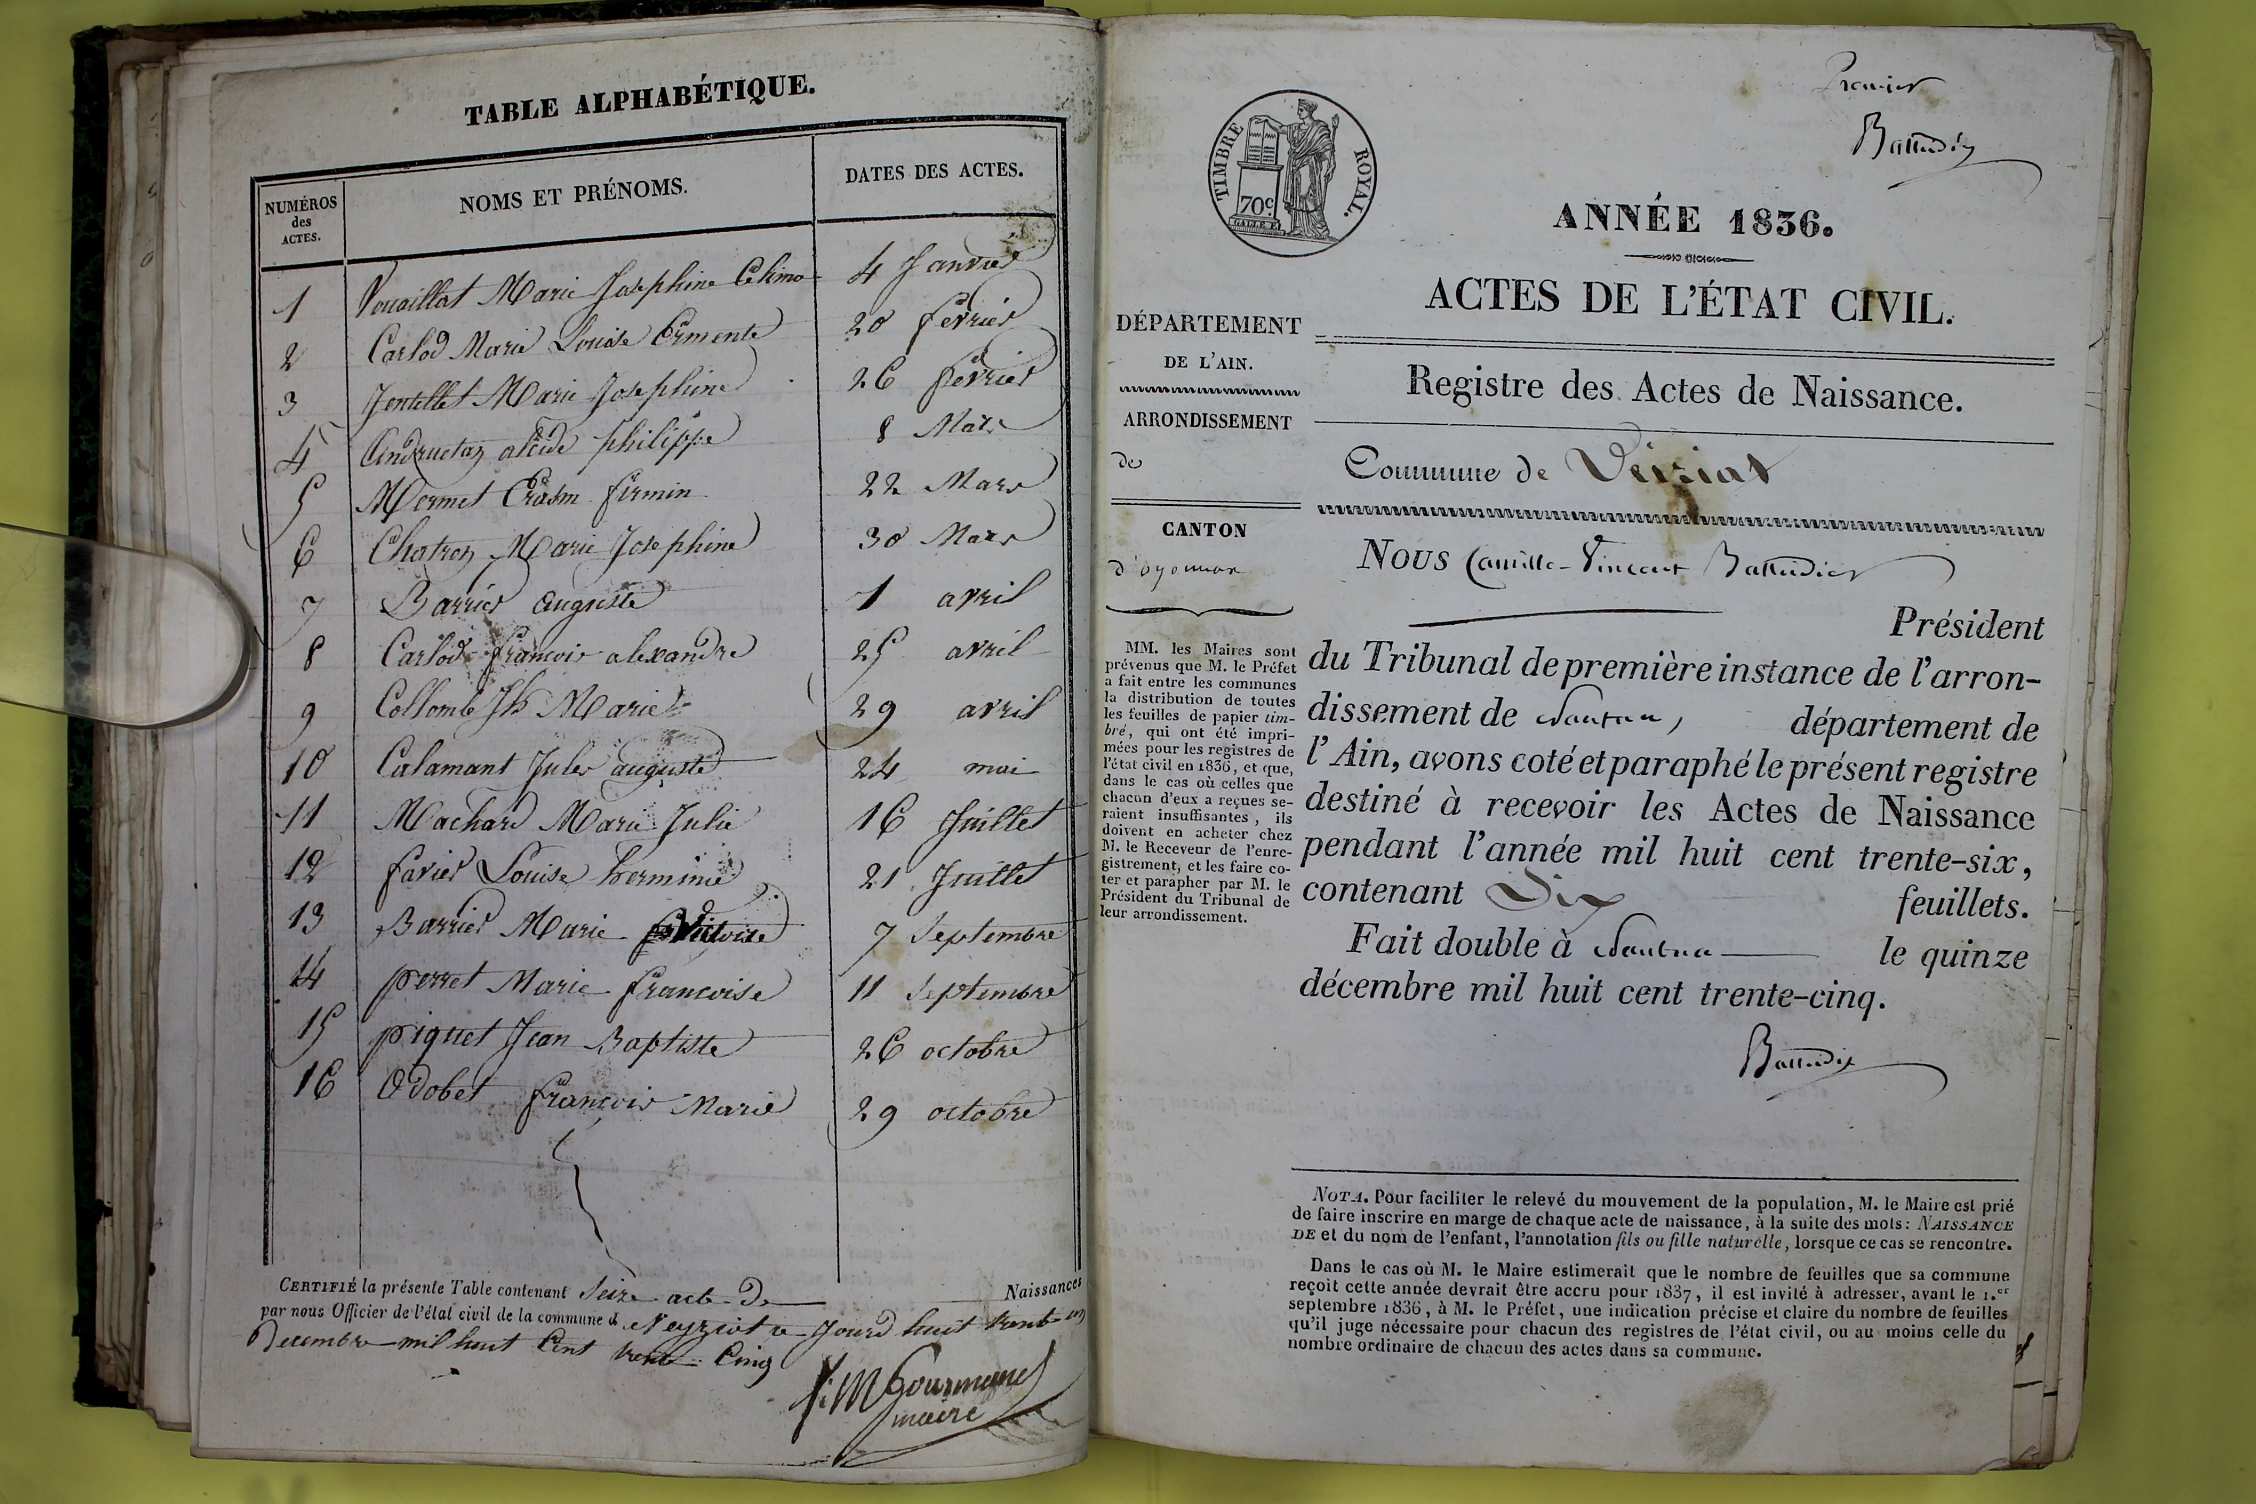 TABLE ALPHABÉTIQUE.
NUMÉROS des ACTES. NOMS ET PRÉNOMS. DATES DES ACTES.
1 Vouaillat Marie Josephine 4 Janvier
2 Carlod Marie Louise Ermente 20 fevrier
3 Jentellet Marie Josephine 26 fevrier
4 alcide philippe 8 Mars
5 Mermet Erasm firmin 22 Mars
6 Chatron Marie Josephine 30 Mars
7 Barrier auguste 1 avril
8 Carlod francois alexandre 25 avril
9 Collomb Jh Marie 29 avril
10 Calamant Jules auguste 24 mai
11 Machard Marie Julie 16 Juillet
12 favier Louise hermine 21 Juillet
13 Barrier Marie Victoire 7 Septembre
14 perret Marie francoise 11 Septembre
15 piquet Jean Baptiste 26 octobre
16 Odobet francois Marie 29 octobre
CERTIFIÉ la présente Table contenant Seize acte de Naissances
par nous Officier de l'état civil de la commune de Veyziat ce Jourd huit trente un
Decembre mil huit Cent trente Cinq
J: M Gourmand
maire
Premier
Battudier
TIMBRE ROYAL.
70c
ANNÉE 1836.
ACTES DE L'ÉTAT CIVIL.
Registre des Actes de Naissance.
Commune de Veiziat
DÉPARTEMENT
DE L'AIN.
ARRONDISSEMENT
de
CANTON
d'oyonnax
MM. les Maires sont
prévenus que M. le Préfet
a fait entre les communes
la distribution de toutes
les feuilles de papier tim-
bré, qui ont été impri-
mées pour les registres de
l'état civil en 1836, et que,
dans le cas où celles que
chacun d'eux a reçues se-
raient insuffisantes, ils
doivent en acheter chez
M. le Receveur de l'enre-
gistrement, et les faire co-
ter et parapher par M. le
Président du Tribunal de
leur arrondissement.
NOUS Camille-Vincent Battudier
Président
du Tribunal de première instance de l'arron-
dissement de Nantua, département de
l'Ain, avons coté et paraphé le présent registre
destiné à recevoir les Actes de Naissance
pendant l'année mil huit cent trente-six,
contenant Six feuillets.
Fait double à Nantua le quinze
décembre mil huit cent trente-cinq.
Battudier
NOTA. Pour faciliter le relevé du mouvement de la population, M. le Maire est prié
de faire inscrire en marge de chaque acte de naissance, à la suite des mots: NAISSANCE
DE et du nom de l'enfant, l'annotation fils ou fille naturelle, lorsque ce cas se rencontre.
Dans le cas où M. le Maire estimerait que le nombre de feuilles que sa commune
reçoit cette année devrait être accru pour 1837, il est invité à adresser, avant le 1.er
septembre 1836, à M. le Préfet, une indication précise et claire du nombre de feuilles
qu'il juge nécessaire pour chacun des registres de l'état civil, ou au moins celle du
nombre ordinaire de chacun des actes dans sa commune.